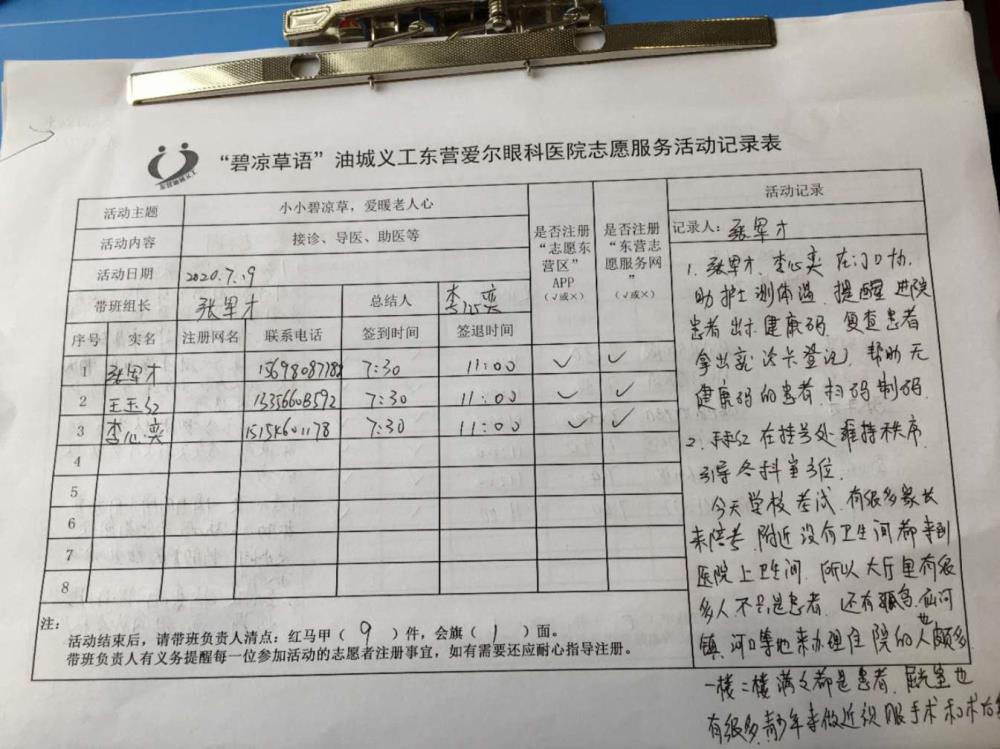 “碧凉草语”油城义工东营爱尔眼科医院志愿服务活动记录表
东营油城义工
活动主题 小小碧凉草，爱暖老人心
活动内容 接诊、导医、助医等
活动日期 2020.7.19
带班组长 张军才 总结人 李心奕
是否注册“志愿东营区”APP（√或×）
是否注册“东营志愿服务网”（√或×）
序号 实名 注册网名 联系电话 签到时间 签退时间
1 张军才 7:30 11:00 ✓ ✓
2 王玉红 13356603592 7:30 11:00 ✓ ✓
3 李心奕 7:30 11:00 ✓ ✓
4
5
6
7
8
注：
活动结束后，请带班负责人清点：红马甲（ 9 ）件，会旗（ 1 ）面。
带班负责人有义务提醒每一位参加活动的志愿者注册事宜，如有需要还应耐心指导注册。
活动记录
记录人：张军才
1. 张军才、李心奕在门口协
助护士测体温，提醒进院
患者出示健康码，复查患者
拿出就诊卡登记，帮助无
健康码的患者扫码制码。
2. 在挂号处维持秩序，
引导各科室
今天学校考试，有很多家长
来陪考，附近没有卫生间都来到
医院上卫生间，所以大厅里有很
多人不只是患者，还有孤岛、仙河
镇、河口等地来办理住院的人也颇多
一楼二楼满满都是患者，屈光室也
有很多青少年来做近视眼手术和术后